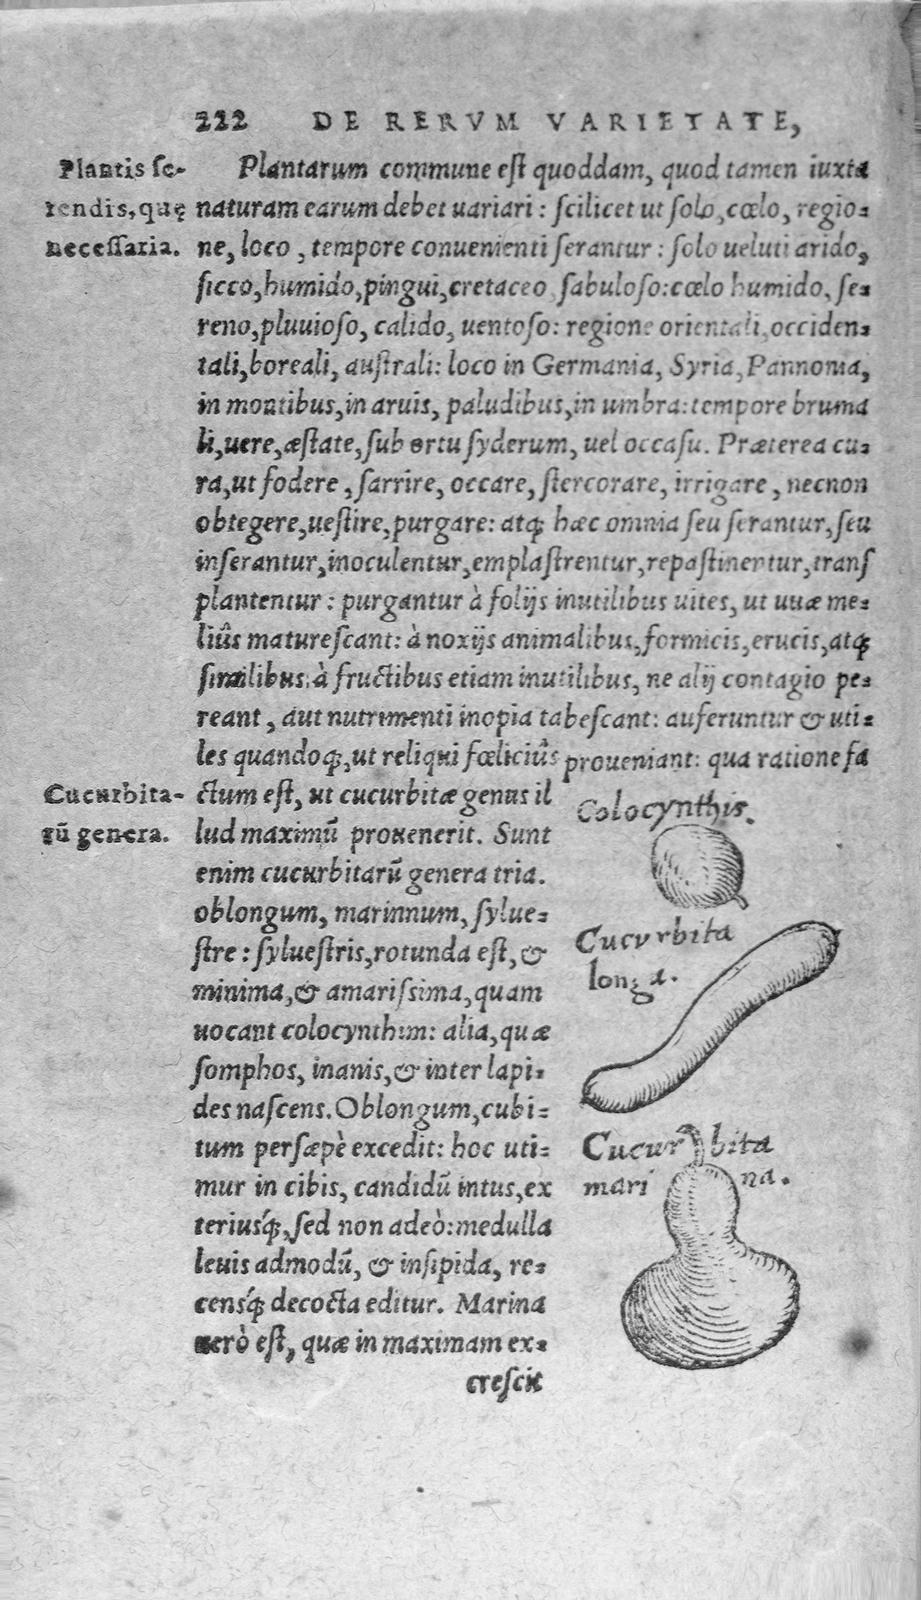 222 DE RERVM VARIETATE,
Plantis se-
rendis, quę
necessaria.
Plantarum commune est quoddam, quod tamen iuxta
naturam earum debet uariari: scilicet ut solo, cœlo, regio-
ne, loco, tempore conuenienti serantur: solo ueluti arido,
sicco, humido, pingui, cretaceo sabuloso: cœlo humido, se-
reno, pluuioso, calido, uentoso: regione orientali, occiden-
tali, boreali, australi: loco in Germania, Syria, Pannonia,
in montibus, in aruis, paludibus, in umbra: tempore bruma
li, uere, æstate, sub ortu syderum, uel occasu. Præterea cu-
ra, ut fodere, sarrire, occare, stercorare, irrigare, necnon
obtegere, uestire, purgare: atq; hæc omnia seu serantur, seu
inserantur, inoculentur, emplastrentur, repastinentur, trans
plantentur: purgantur à folijs inutilibus uites, ut uuæ me-
liûs maturescant: à noxijs animalibus, formicis, erucis, atq;
similibus: à fructibus etiam inutilibus, ne alij contagio pe-
reant, aut nutrimenti inopia tabescant: auferuntur & uti-
les quandoq;, ut reliqui fœliciûs proueniant: qua ratione fa
Cucurbita-
rū genera.
ctum est, ut cucurbitæ genus il
lud maximū prouenerit. Sunt
enim cucurbitarū genera tria.
oblongum, marinnum, sylue-
stre: syluestris, rotunda est, &
minima, & amarissima, quam
uocant colocynthim: alia, quæ
somphos, inanis, & inter lapi-
des nascens. Oblongum, cubi-
tum persæpè excedit: hoc uti-
mur in cibis, candidū intus, ex
teriusq;, sed non adeò: medulla
leuis admodū, & insipida, re-
censq; decocta editur. Marina
uerò est, quæ in maximam ex-
crescit
Colocynthis.
Cucurbita
longa.
Cucurbita
marina.